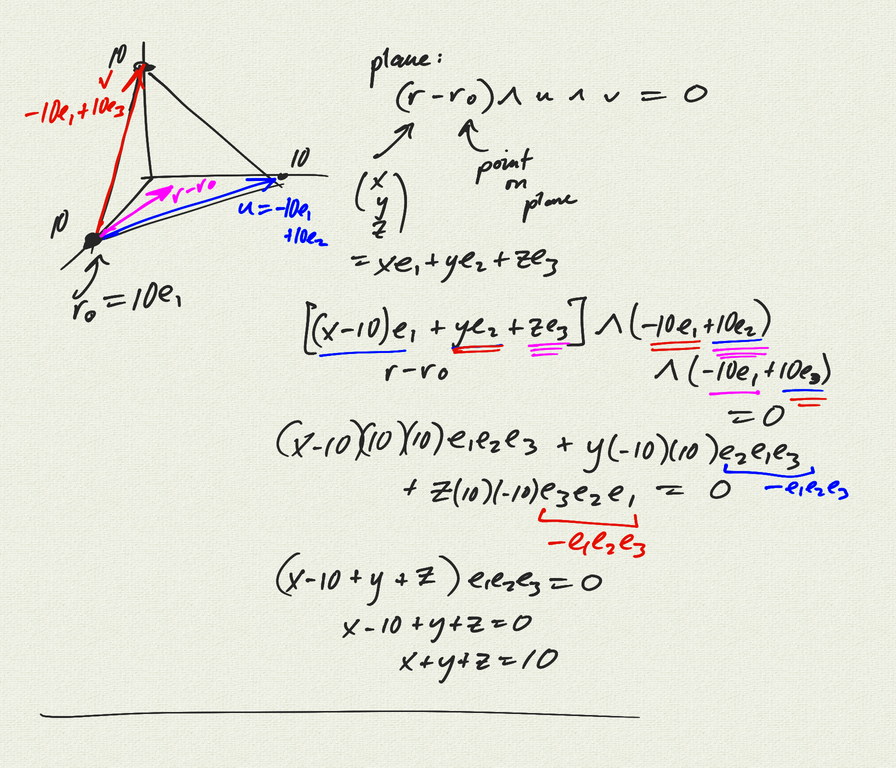 10
v
-10e₁+10e₃
10
r-r₀
u=-10e₁
+10e₂
10
r₀=10e₁
plane:
(r-r₀)∧ u ∧ v = 0
(x
y
z)
point
on
plane
=xe₁+ye₂+ze₃
[(x-10)e₁ + ye₂ + ze₃] ∧ (-10e₁+10e₂)
r-r₀
∧ (-10e₁+10e₃)
=0
(x-10)(10)(10)e₁e₂e₃ + y(-10)(10)e₂e₁e₃
+ z(10)(-10)e₃e₂e₁ = 0
-e₁e₂e₃
-e₁e₂e₃
(x-10+y+z) e₁e₂e₃=0
x-10+y+z=0
x+y+z=10